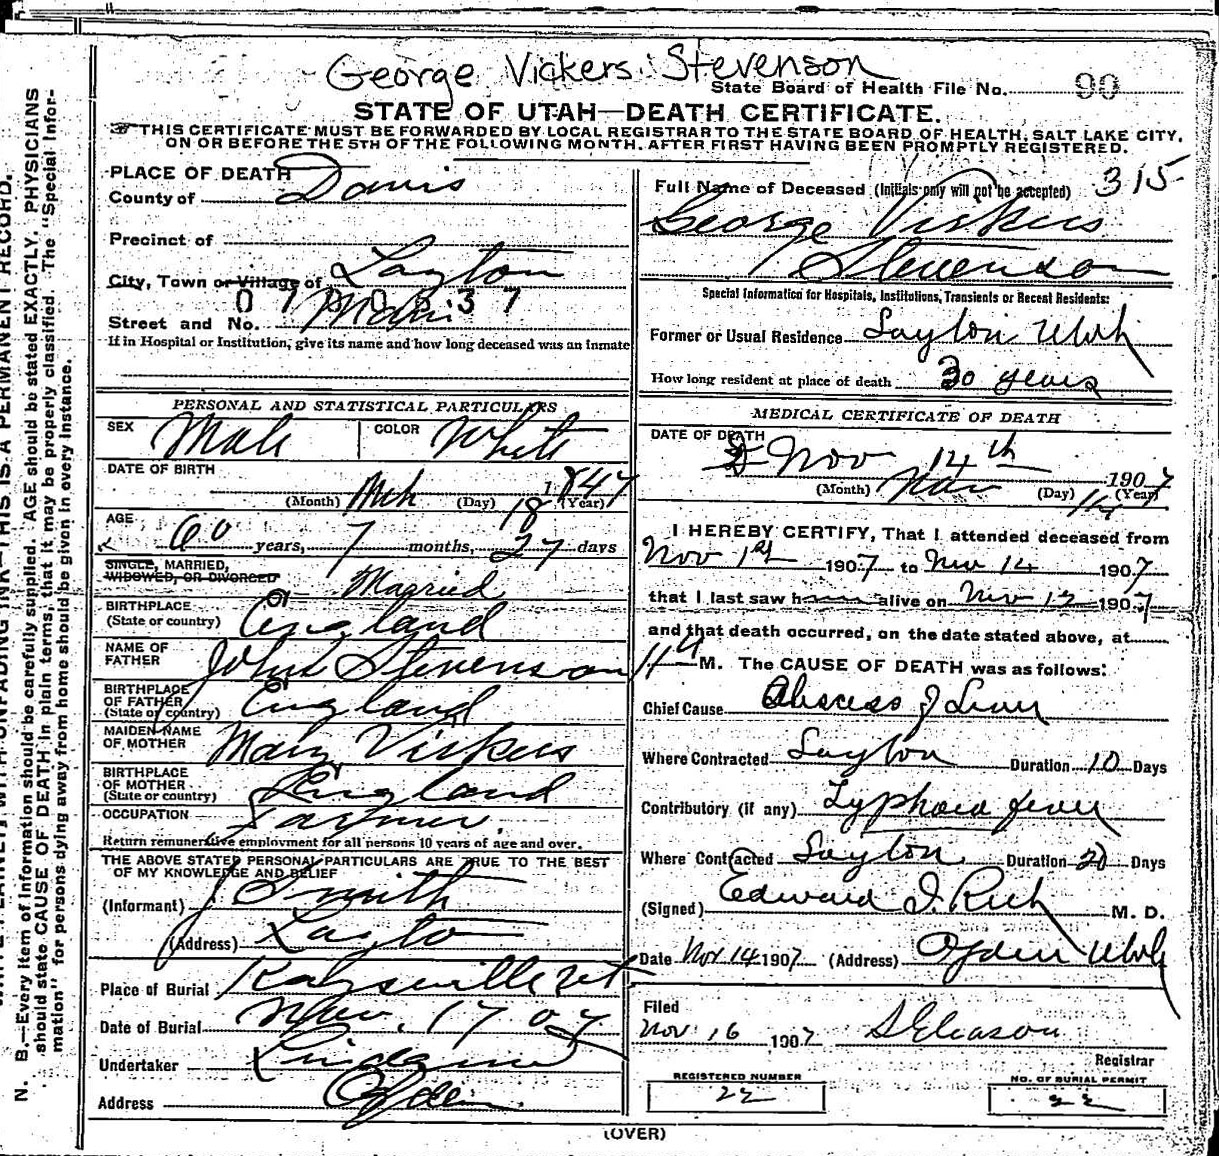 George Vickers Stevenson
State Board of Health File No. 90
STATE OF UTAH—DEATH CERTIFICATE.
THIS CERTIFICATE MUST BE FORWARDED BY LOCAL REGISTRAR TO THE STATE BOARD OF HEALTH, SALT LAKE CITY,
ON OR BEFORE THE 5TH OF THE FOLLOWING MONTH, AFTER FIRST HAVING BEEN PROMPTLY REGISTERED.
PLACE OF DEATH
County of Davis
Precinct of
City, Town or Village of Layton
Street and No. Main
If in Hospital or Institution, give its name and how long deceased was an inmate
PERSONAL AND STATISTICAL PARTICULARS
SEX Male COLOR White
DATE OF BIRTH
(Month) Mch (Day) 18 1847 (Year)
AGE 60 years, 7 months, 27 days
SINGLE, MARRIED,
WIDOWED, OR DIVORCED Married
BIRTHPLACE
(State or country) England
NAME OF
FATHER John Stevenson
BIRTHPLACE
OF FATHER
(State or country) England
MAIDEN NAME
OF MOTHER Mary Vickers
BIRTHPLACE
OF MOTHER
(State or country) England
OCCUPATION Farmer
Return remunerative employment for all persons 10 years of age and over.
THE ABOVE STATED PERSONAL PARTICULARS ARE TRUE TO THE BEST
OF MY KNOWLEDGE AND BELIEF
(Informant) J Smith
(Address) Layto
Place of Burial Kaysville Ut
Date of Burial Nov. 17 07
Undertaker
Address Ogden
Full Name of Deceased (Initials only will not be accepted) 315
George Vickers
Stevenson
Special Information for Hospitals, Institutions, Transients or Recent Residents:
Former or Usual Residence Layton Utah
How long resident at place of death 30 years
MEDICAL CERTIFICATE OF DEATH
DATE OF DEATH
Nov 14th 1907
(Month) Nov (Day) 14 (Year)
I HEREBY CERTIFY, That I attended deceased from
Nov 1st 1907 to Nov 14 1907
that I last saw him alive on Nov 12 1907
and that death occurred, on the date stated above, at
M. The CAUSE OF DEATH was as follows:
Chief Cause Abscess of Liver
Where Contracted Layton Duration 10 Days
Contributory (if any) Typhoid fever
Where Contracted Layton Duration 20 Days
(Signed) Edward I. Rich M. D.
Date Nov 14 1907 (Address) Ogden Utah
Filed
Nov 16 1907 S Gleason
Registrar
REGISTERED NUMBER
22
NO. OF BURIAL PERMIT
22
(OVER)
N. B.—Every item of information should be carefully supplied. AGE should be stated EXACTLY. PHYSICIANS
should state CAUSE OF DEATH in plain terms, that it may be properly classified. The "Special Infor-
mation" for persons dying away from home should be given in every instance.